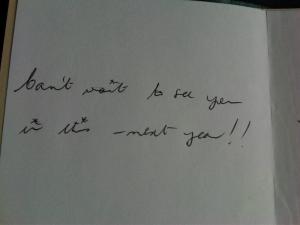 Can't wait to see you
in this - next year!!